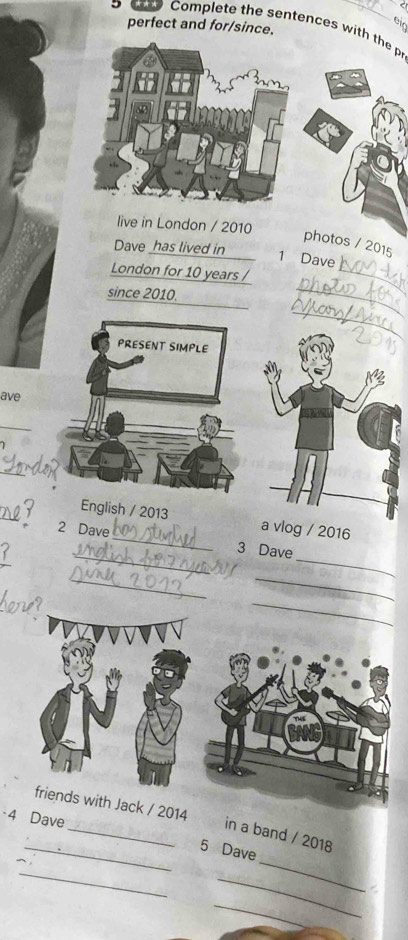 5 *** Complete the sentences with the pr
perfect and for/since.
live in London / 2010
Dave has lived in
London for 10 years /
since 2010.
photos / 2015
1 Dave
photos for
years/since
2015
PRESENT SIMPLE
ave
London?
me?
?
here?
English / 2013
2 Dave has studied
english for 7 years
since 2013
a vlog / 2016
3 Dave
THE
BANG
friends with Jack / 2014
4 Dave
in a band / 2018
5 Dave